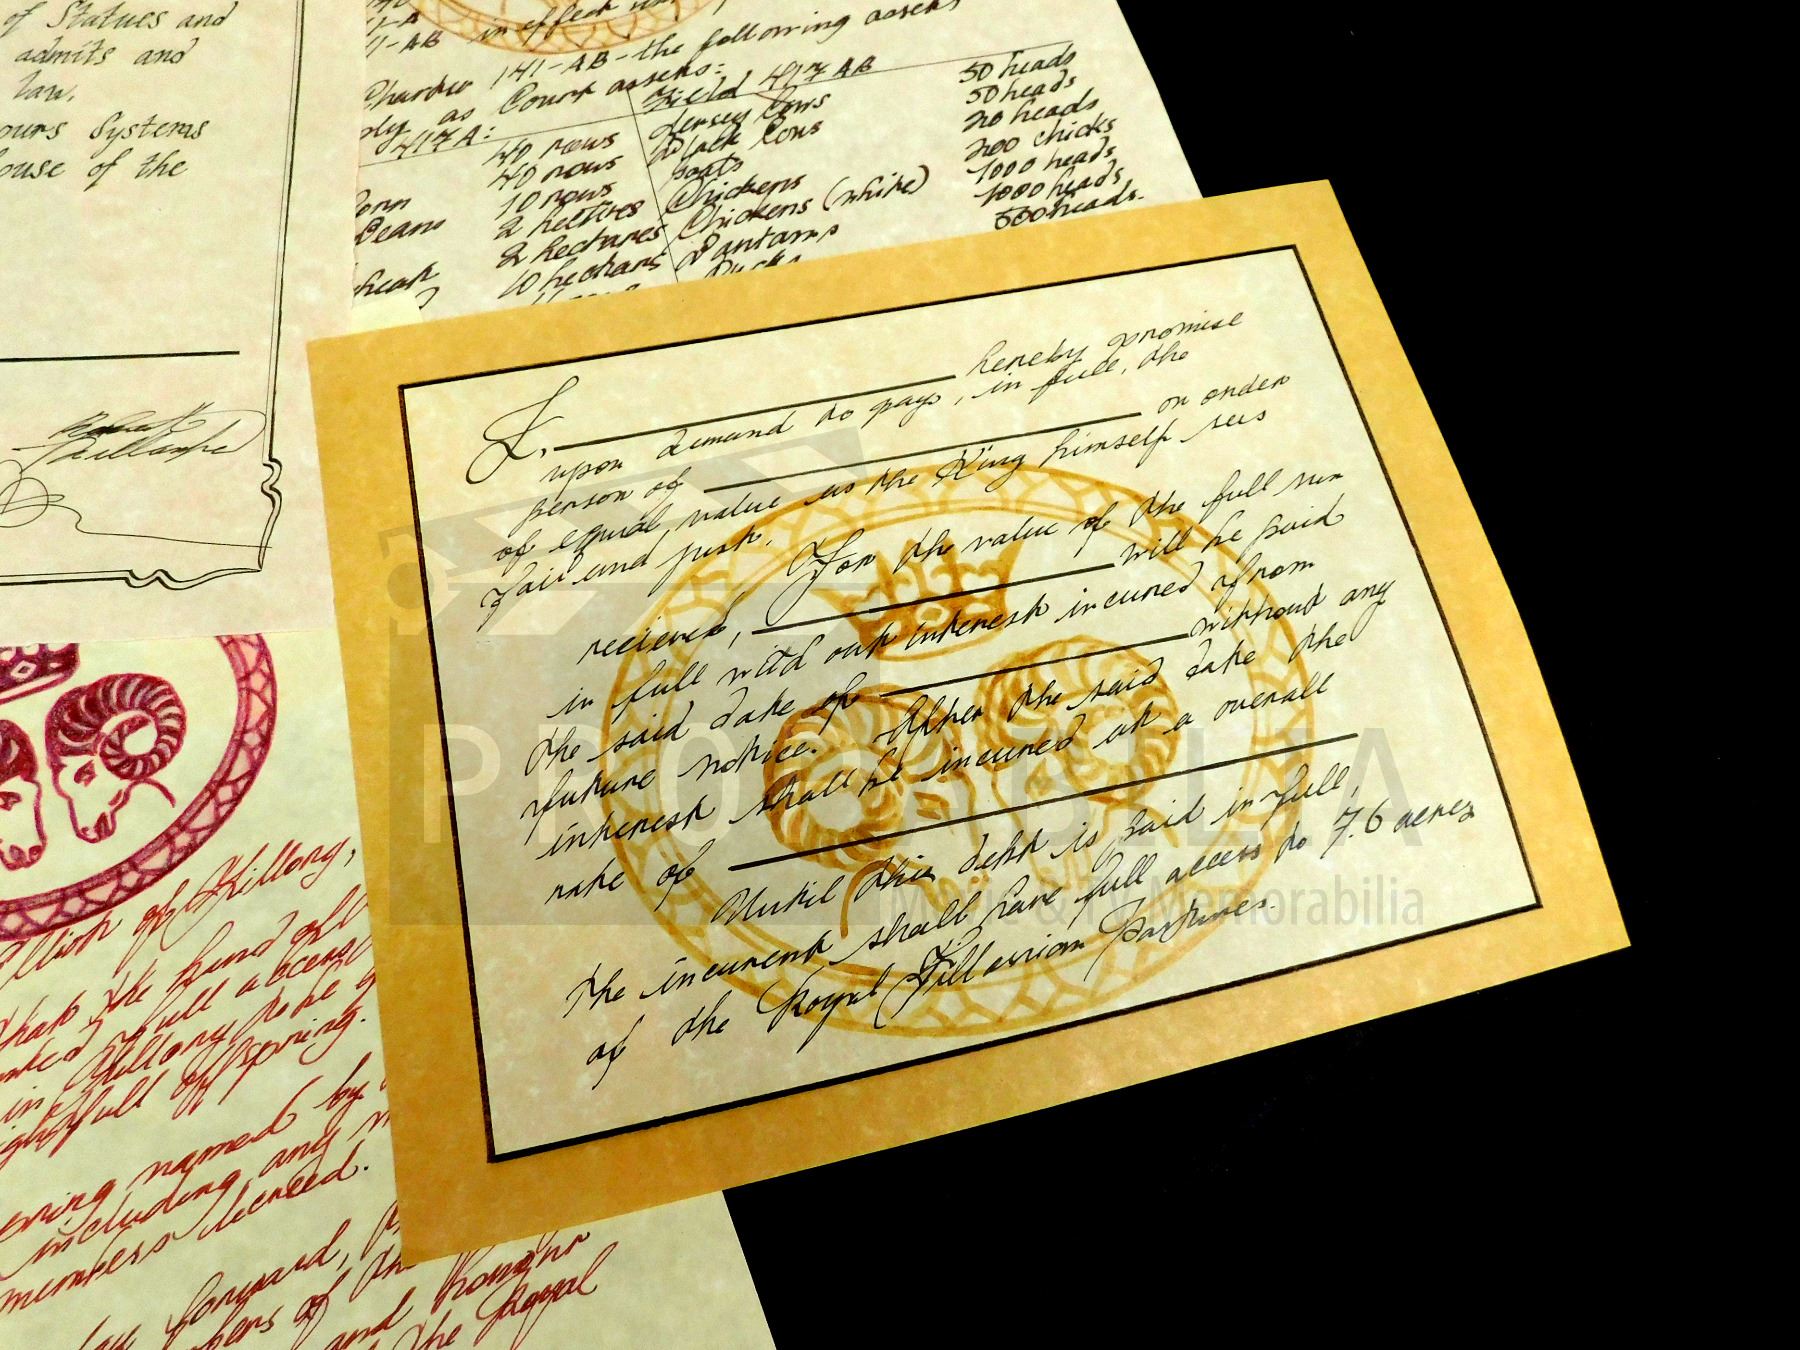 of Statues and
admits and
law.
ours Systems
ouse of the
41-A
41-AB in effect
Charter 141-AB-the following assets
as Court assets:
417A:
Field 417 AB
40 rows
Jersey Cows
50 heads
40 rows
Black Cows
50 heads
10 rows
goats
20 heads
orn
Chickens
200 chicks
Beans
2 hectares
Chickens (white)
1000 heads
10 hectars
Bantams
1000 heads
heat
Ducks
500 heads.
I, hereby promise
upon demand to pay, in full, the
person of or order
of equal value as the King himself sees
fair and just.
For the value of the full sum
recieved, will be paid
in full with out interest incured from
the said date of without any
future notice. After the said date the
interest shall be incured at a overall
rate of
Until this debt is paid in full,
the incurent shall have full access to 7.6 acres
of the Royal Fillorian Pastures.
PROPABILIA
Movie & TV Memorabilia
of Fillory,
that the hand of
full access
in Fillory to be
full offspring.
named by
including any
members
forward,
of the
and honour
the Royal